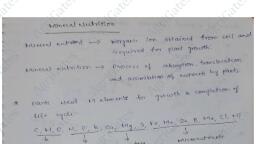 Mineral Nutrition
Mineral nutrient → Inorganic ion obtained from soil and
required for plant growth.
Mineral nutrition → Process of absorption, translocation
and assimilation of nutrients by plants.
* Plants need elements for growth & completion of
life cycle.
C, H, O, N, P, K, Ca, Mg, S, Fe, Mn, Zn, B, Mo, Cl,
Micronutrients